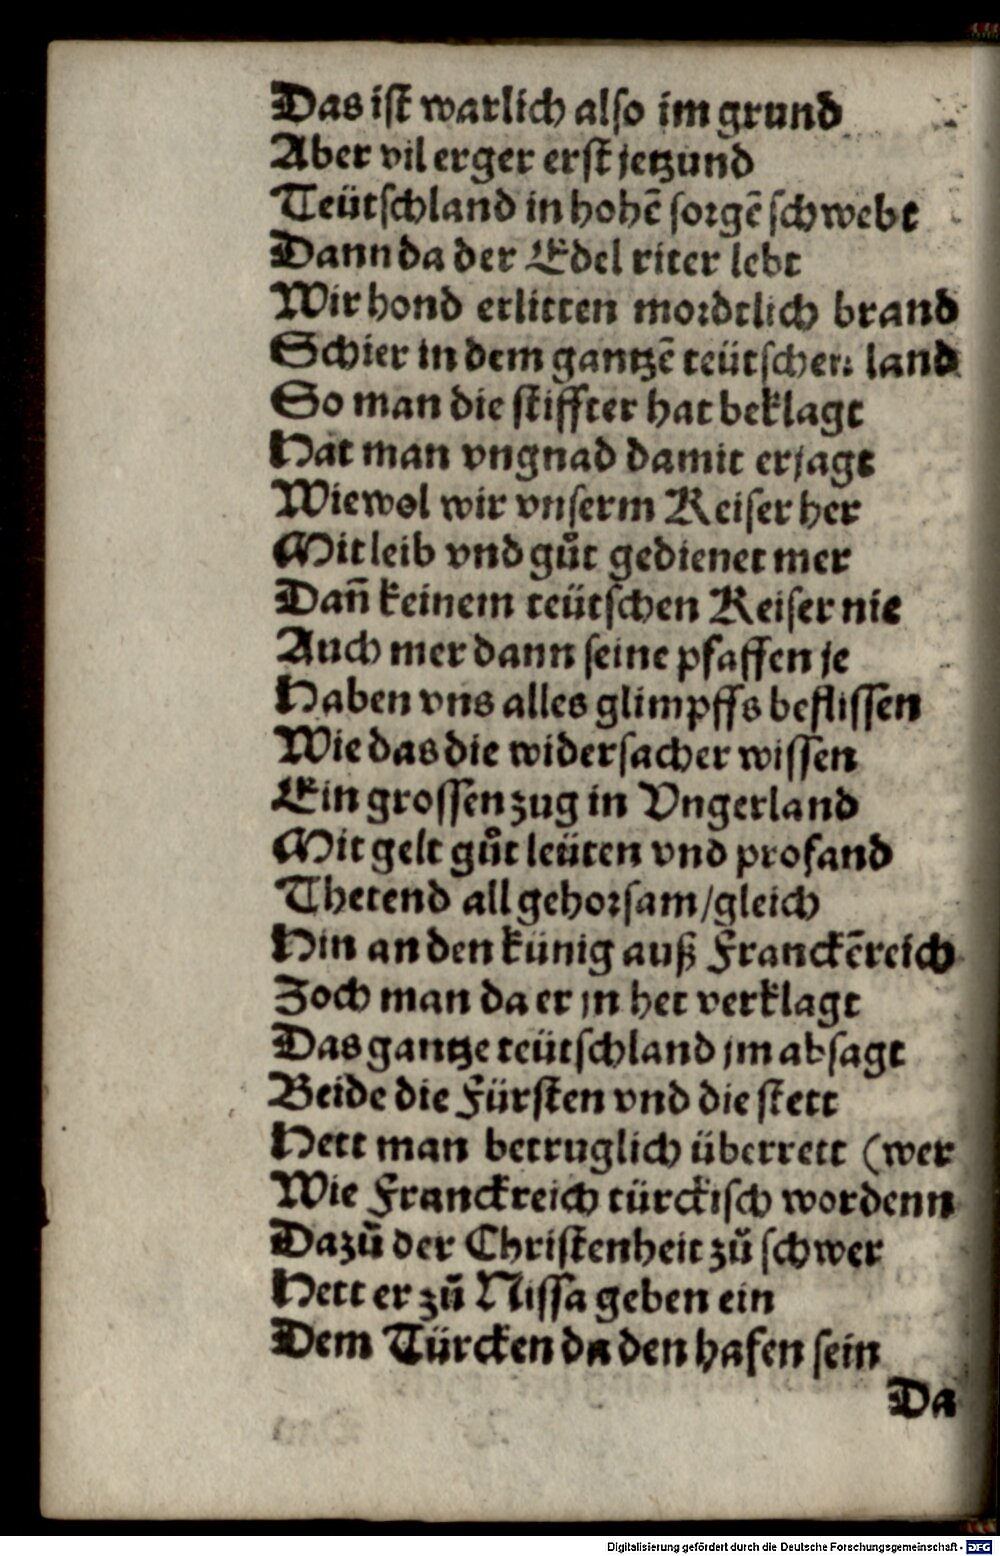 Das iſt warlich alſo im grund
Aber vil erger erſt jetzund
Teütſchland in hohē ſorgē ſchwebt
Dann da der Edel riter lebt
Wir hond erlitten mordtlich brand
Schier in dem gantzē teütſchen land
So man die ſtiffter hat beklagt
Hat man vngnad damit erjagt
Wiewol wir vnſerm Keiſer her
Mit leib vnd gůt gedienet mer
Dañ keinem teütſchen Keiſer nie
Auch mer dann ſeine pfaffen je
Haben vns alles glimpffs befliſſen
Wie das die widerſacher wiſſen
Ein groſſen zug in Vngerland
Mit gelt gůt leüten vnd profand
Thetend all gehorſam/gleich
Hin an den künig auß Franckēreich
Zoch man da er jn het verklagt
Das gantze teütſchland jm abſagt
Beide die Fürſten vnd die ſtett
Hett man betruglich überrett (wer
Wie Franckreich türckiſch wordenn
Dazů der Chriſtenheit zů ſchwer
Hett er zů Niſſa geben ein
Dem Türcken da den hafen ſein
Da
Digitalisierung gefördert durch die Deutsche Forschungsgemeinschaft - DFG